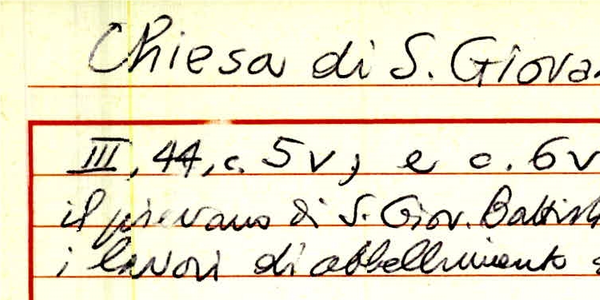 Chiesa di S. Giova
III, 44, c. 5v, e c. 6v
il pievano di S. Giov. Battist
i lavori di abbellimento